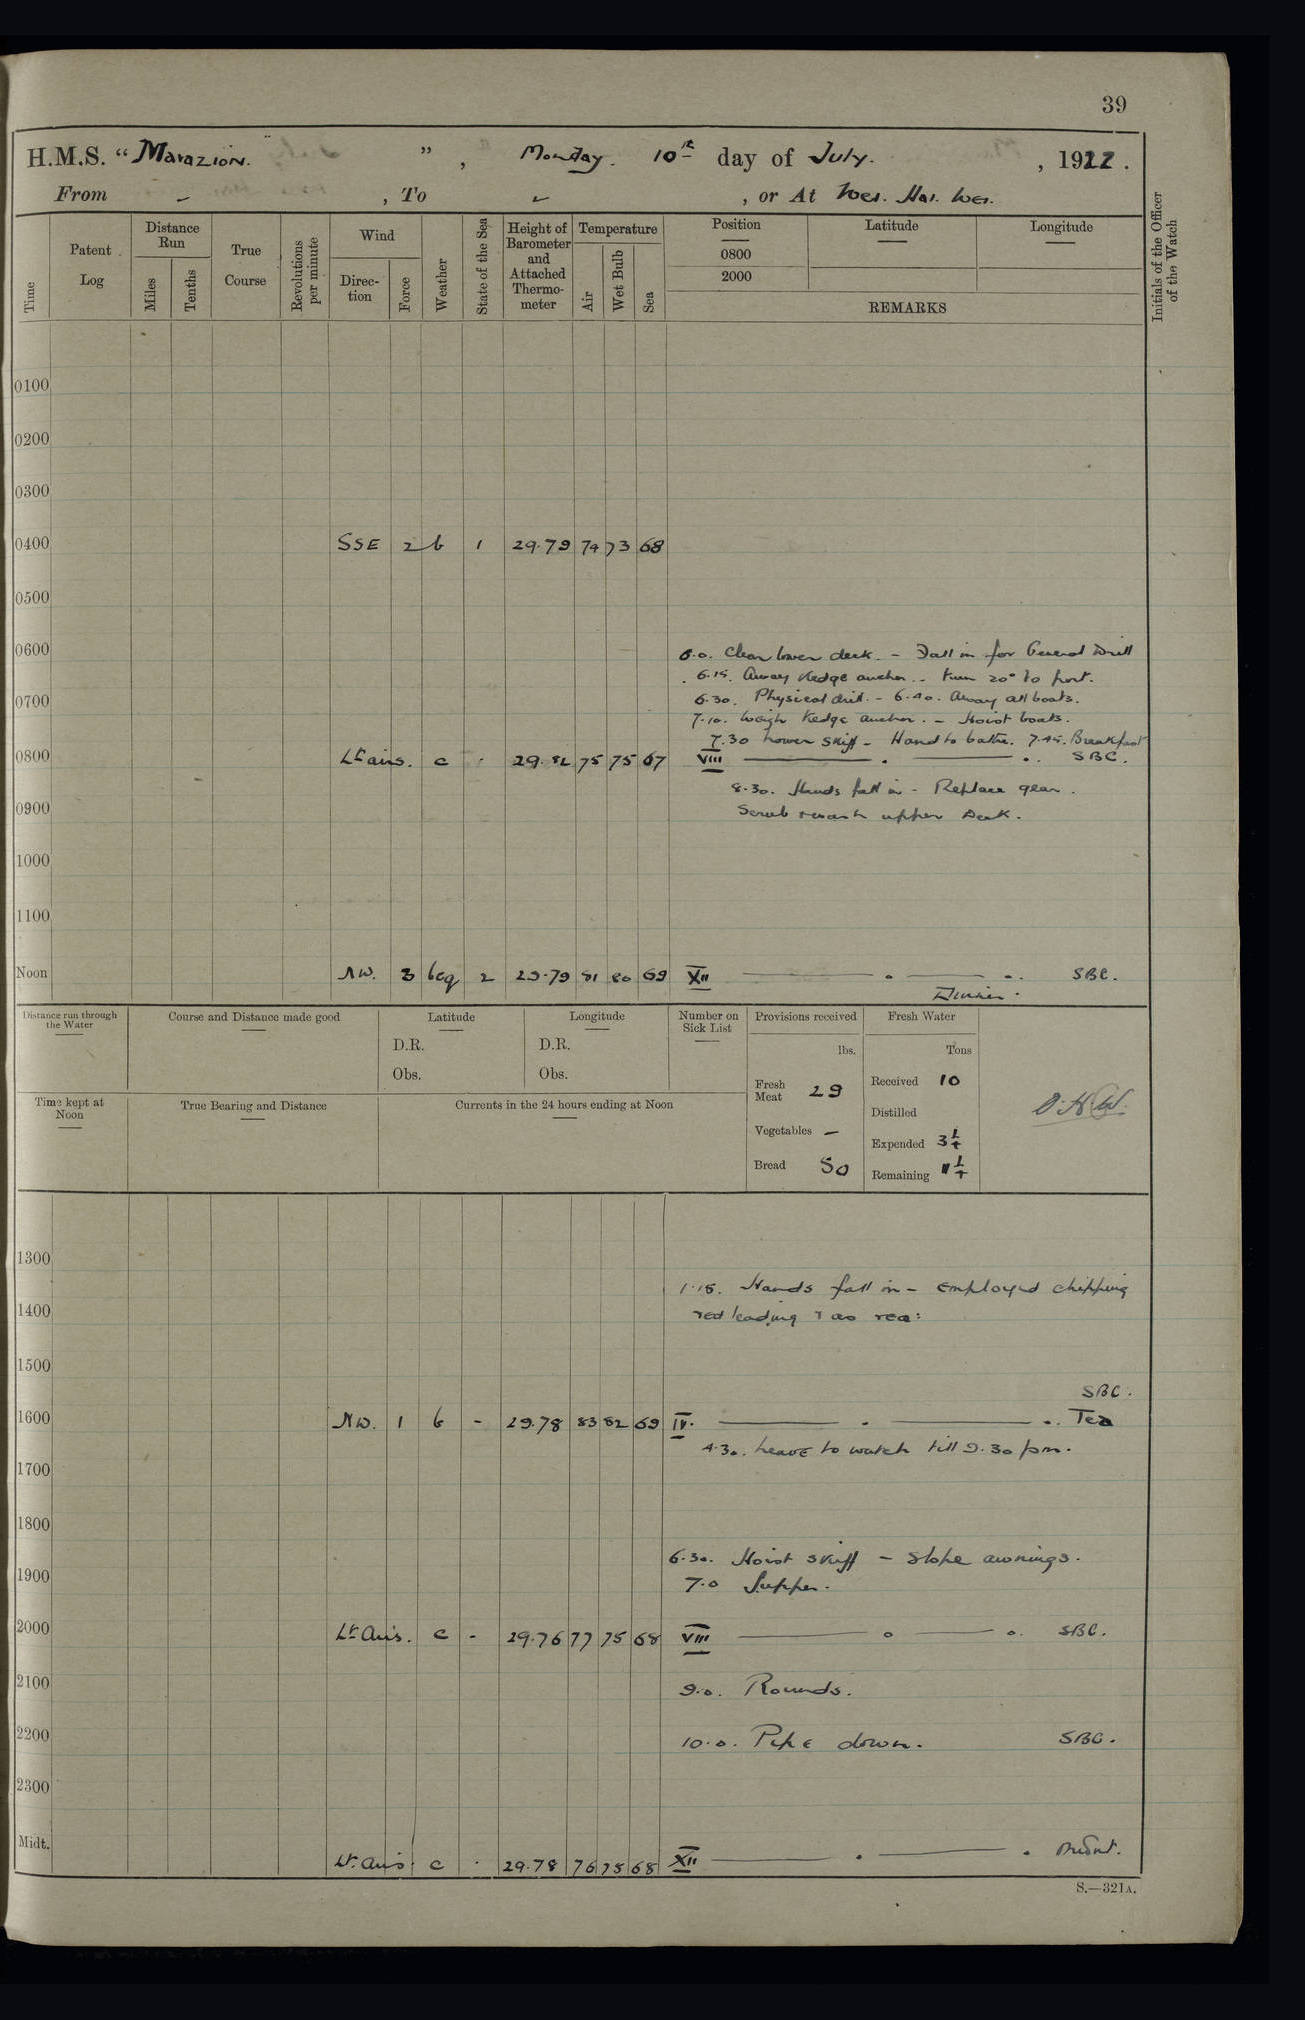 39
H.M.S. “ Marazion. ” , Monday. 10th day of July. , 1922 .
From - , To - , or At Wei. Hai. Wei.
Time
Patent Log
Distance Run
Miles
Tenths
True Course
Revolutions per minute
Wind
Direction
Force
Weather
State of the Sea
Height of Barometer and Attached Thermometer
Temperature
Air
Wet Bulb
Sea
Position
0800
2000
Latitude
Longitude
REMARKS
Initials of the Officer of the Watch
0100
0200
0300
0400 SSE 2 b 1 29.79 74 73 68
0500
0600 6.0. Clear lower deck. - Fall in for General Drill
6.15. Away Kedge anchor. - turn 20° to port.
0700 6.30. Physical drill. - 6.40. Away all boats.
7.10. Weigh Kedge anchor. - Hoist boats.
7.30 Lower skiff - Hands to bathe. 7.45. Breakfast
0800 Lt airs. c . 29.82 75 75 67 VIII SBC.
8.30. Hands fall in - Replace gear.
0900 Scrub & wash upper Deck.
1000
1100
Noon NW. 3 bcq 2 29.79 81 80 69 XII SBC.
Dinner.
Distance run through the Water
Course and Distance made good
Latitude
D.R.
Obs.
Longitude
D.R.
Obs.
Number on Sick List
Provisions received
lbs.
Fresh Meat 29
Vegetables -
Bread 50
Fresh Water
Tons
Received 10
Distilled
Expended 3 1/4
Remaining 11 1/4
Time kept at Noon
True Bearing and Distance
Currents in the 24 hours ending at Noon
1300
1.15. Hands fall in - employed chipping
1400 red leading & as req:
1500
SBC.
1600 NW. 1 b - 29.78 83 82 69 IV. Tea
4.30. Leave to watch till 9.30 pm.
1700
1800
6.30. Hoist skiff - slope awnings.
1900 7.0 Supper.
2000 Lt Airs. c - 29.76 77 75 68 VIII SBC.
2100 9.0. Rounds.
2200 10.0. Pipe down. SBC.
2300
Midt. Lt. Airs c . 29.78 76 75 68 XII
S.—321A.